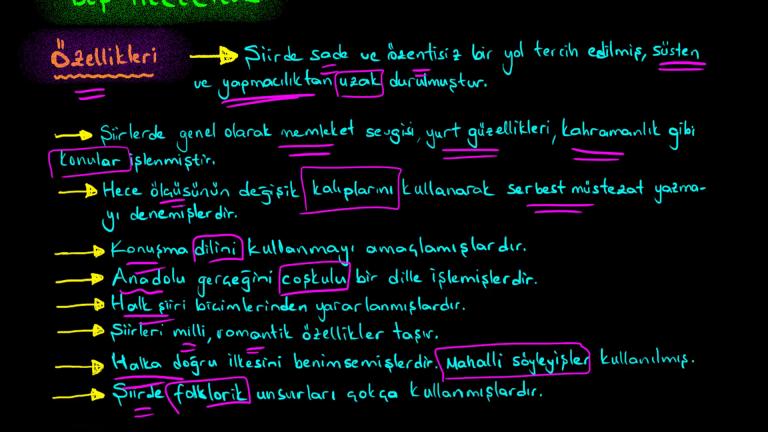 Özellikleri
Şiirde sade ve özentisiz bir yol tercih edilmiş, süsten
ve yapmacılıktan uzak durulmuştur.
Şiirlerde genel olarak memleket sevgisi, yurt güzellikleri, kahramanlık gibi
konular işlenmiştir.
Hece ölçüsünün değişik kalıplarını kullanarak serbest müstezat yazma-
yı denemişlerdir.
Konuşma dilini kullanmayı amaçlamışlardır.
Anadolu gerçeğini coşkulu bir dille işlemişlerdir.
Halk şiiri biçimlerinden yararlanmışlardır.
Şiirleri milli, romantik özellikler taşır.
Halka doğru ilkesini benimsemişlerdir. Mahalli söyleyişler kullanılmış.
Şiirde folklorik unsurları çokça kullanmışlardır.